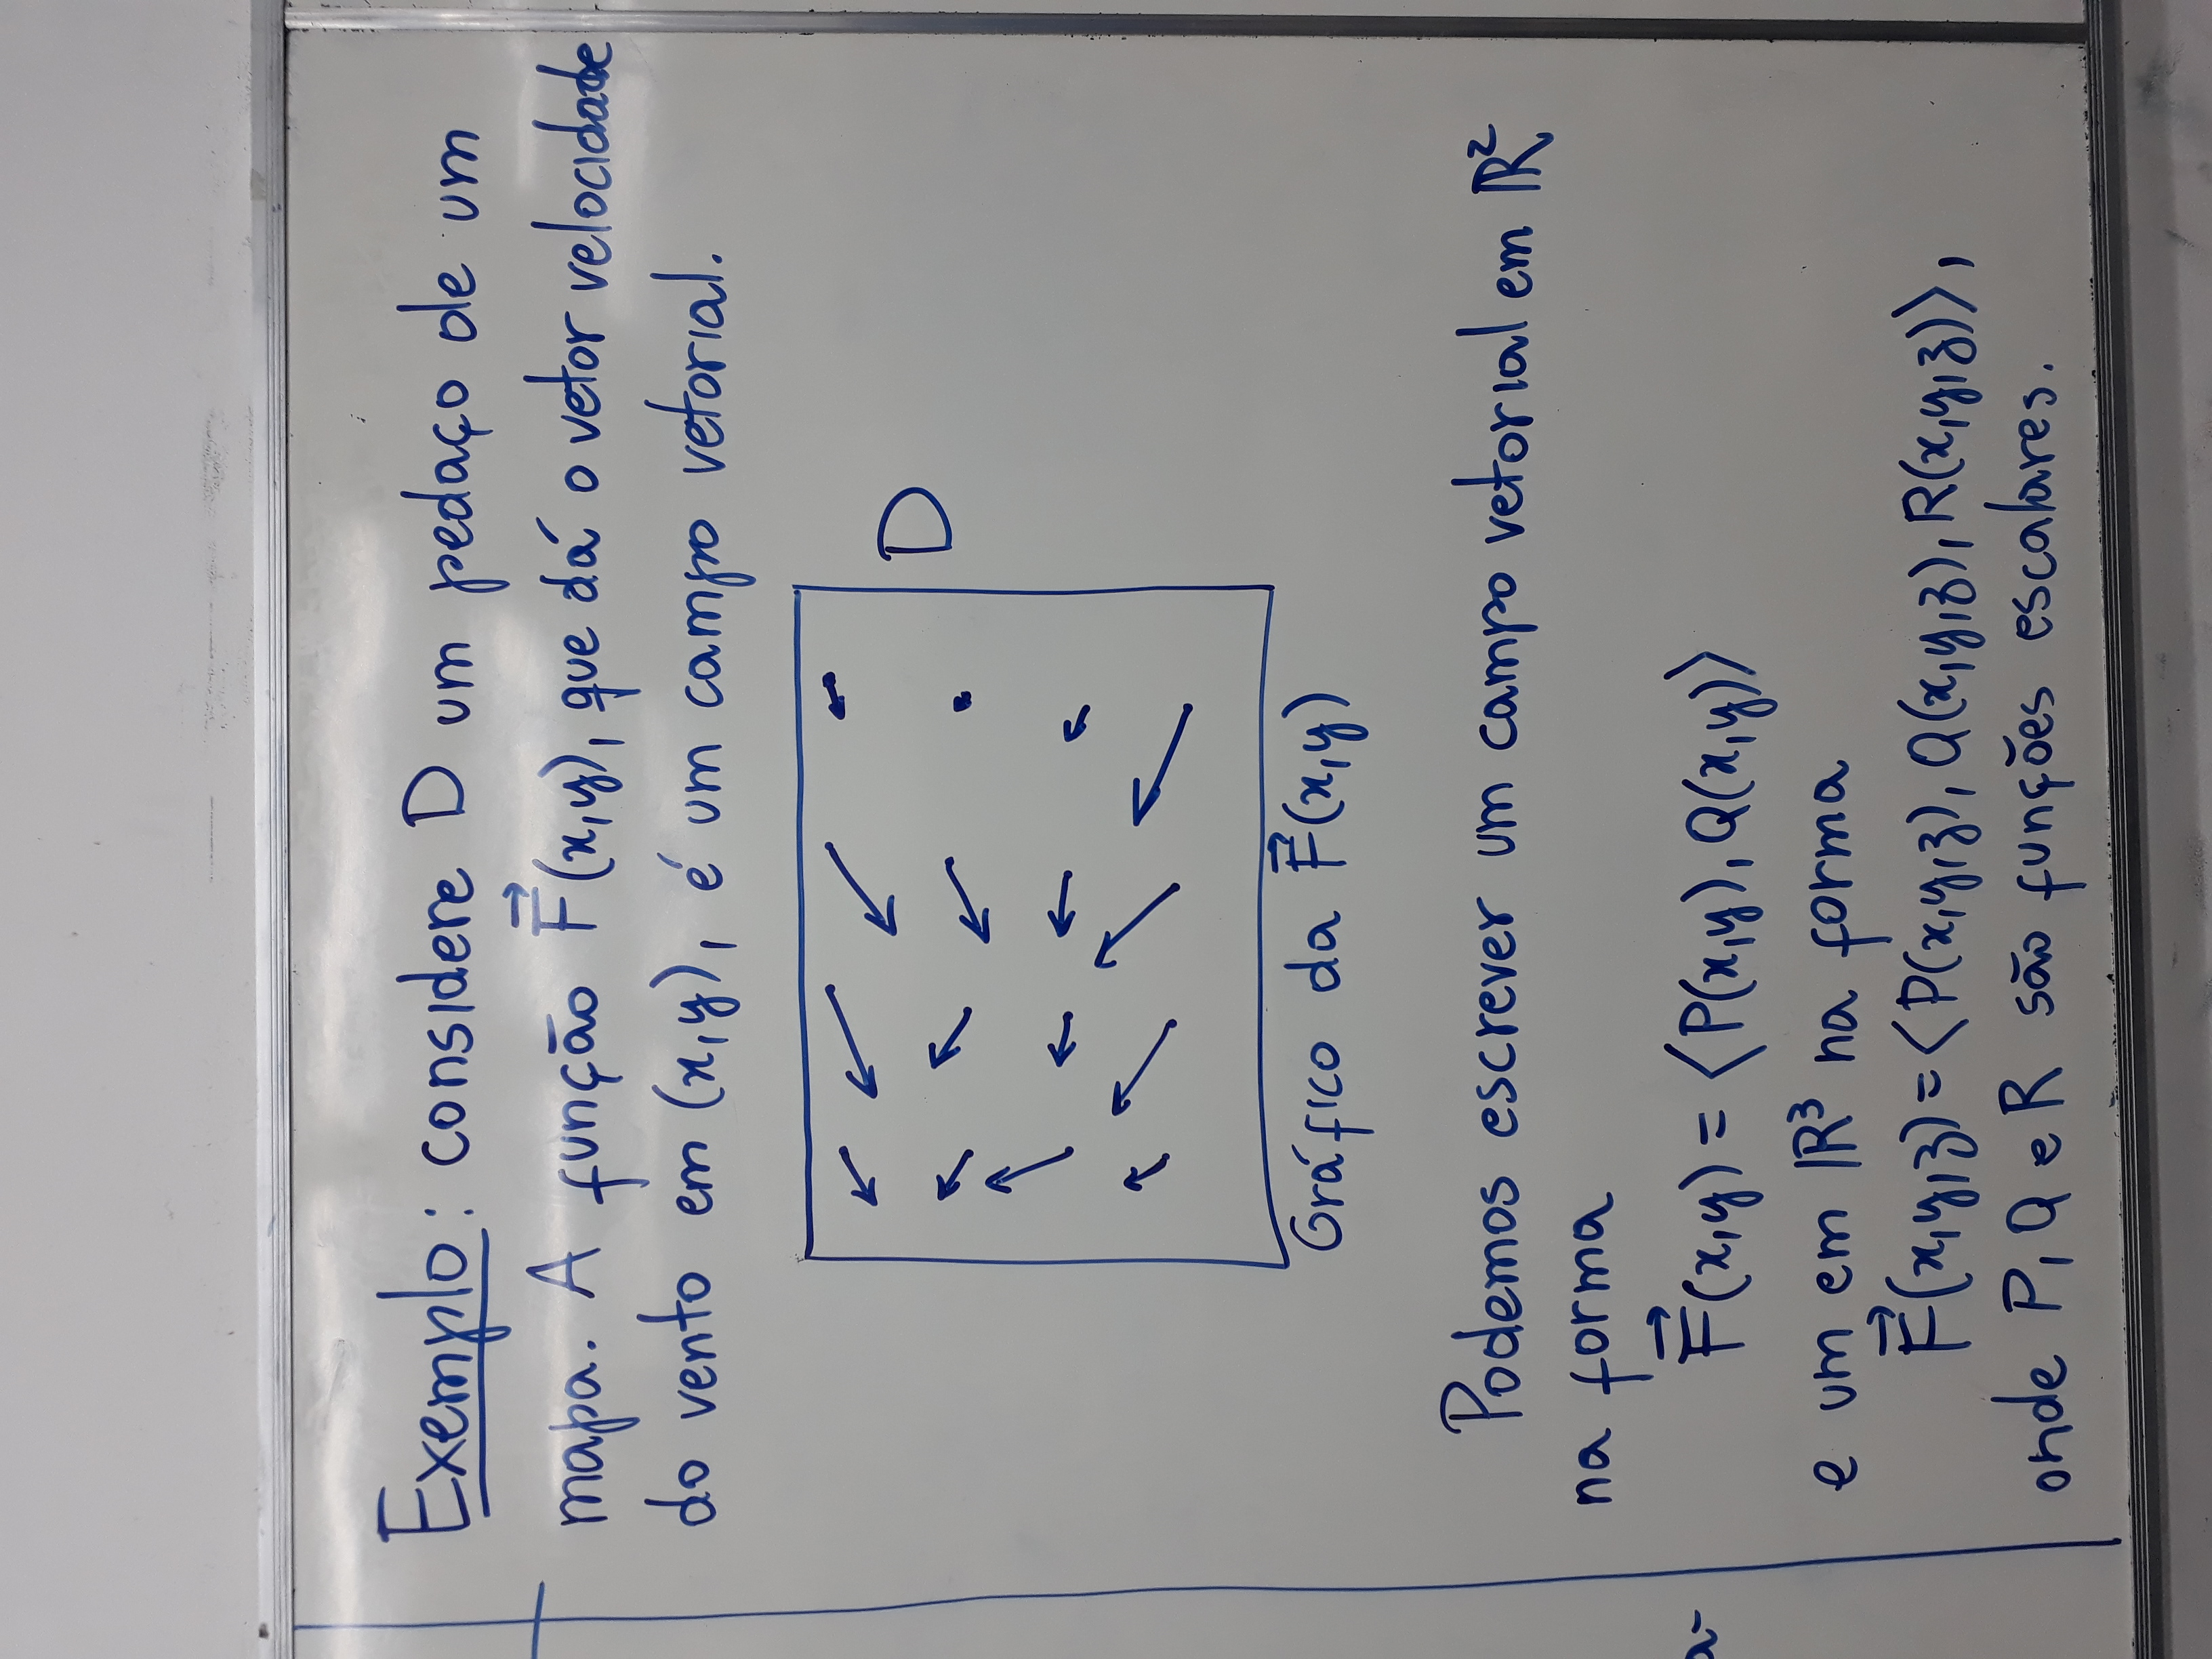 Exemplo: considere D um pedaço de um
mapa. A função F⃗(x,y), que dá o vetor velocidade
do vento em (x,y), é um campo vetorial.
D
Gráfico da F⃗(x,y)
Podemos escrever um campo vetorial em ℝ²
na forma
F⃗(x,y) = ⟨P(x,y), Q(x,y)⟩
e um em ℝ³ na forma
F⃗(x,y,z) = ⟨P(x,y,z), Q(x,y,z), R(x,y,z)⟩,
onde P, Q e R são funções escalares.